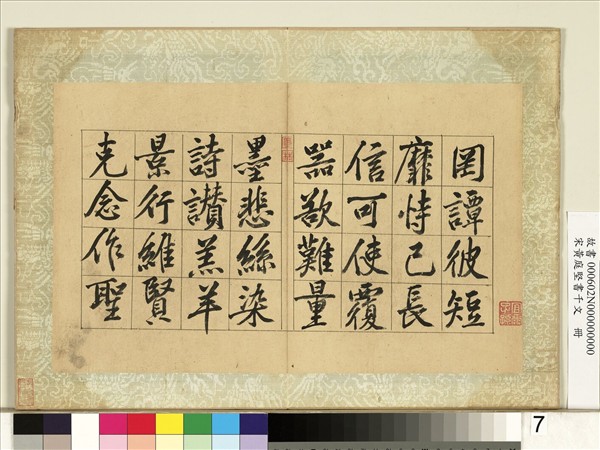 罔譚彼短
靡恃己長
信可使覆
器欲難量
墨悲絲染
詩讃羔羊
景行維賢
克念作聖
故書 000602N000000000
宋黃庭堅書千文 冊
7